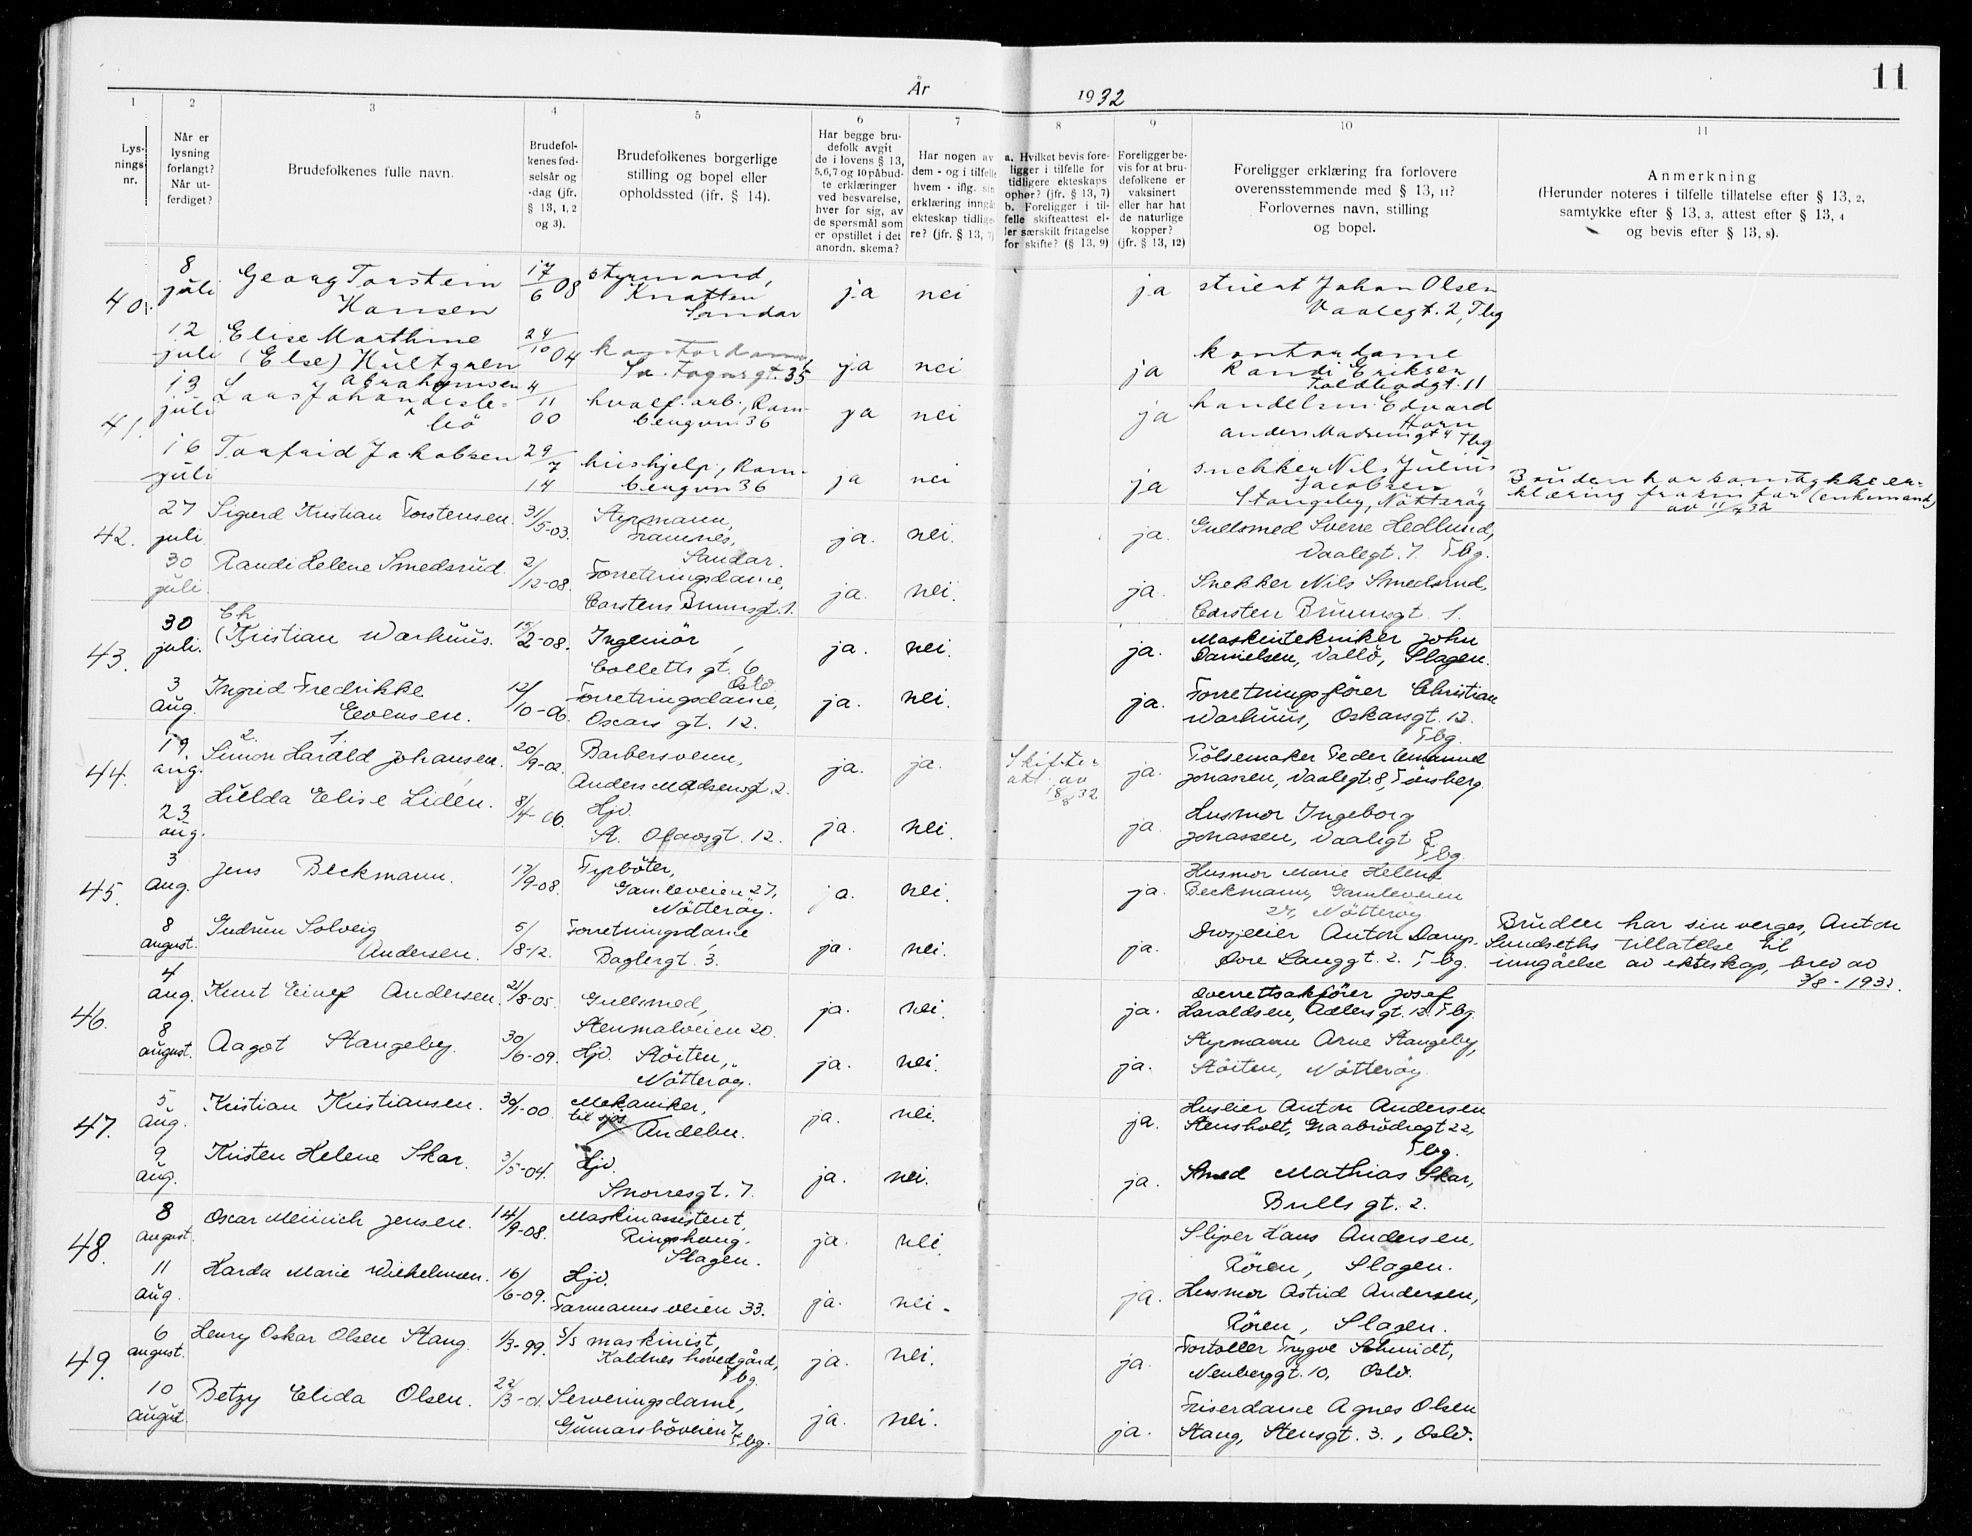 År 1932
11
1 2 3 4 5 6 7 8 9 10 11
Lys-
nings-
nr.
Når er
lysning
forlangt?
Når ut-
ferdiget?
Brudefolkenes fulle navn.
Brudefol-
kenes fød-
selsår og
-dag (jfr.
§ 13, 1, 2
og 3).
Brudefolkenes borgerlige
stilling og bopel eller
opholdssted (ifr. § 14).
Har begge bru-
defolk avgit
de i lovens § 13,
5,6,7 og 10 påbud-
te erklæringer
ved besvarelse,
hver for sig, av
de spørsmål som
er opstillet i det
anordn. skema?
Har nogen av
dem - og i tilfelle
hvem - iflg. sin
erklæring inngåt
ekteskap tidlige-
re? (jfr. § 13, 7)
a. Hvilket bevis fore-
ligger i tilfelle for
tidligere ekteskaps
ophør? (jfr. § 13, 7)
b. Foreligger i til-
felle skifteattest el-
ler særskilt fritagelse
for skifte? (§ 13, 9)
Foreligger be-
vis for at bru-
defolkene er
vaksinert
eller har hat
de naturlige
kopper?
(jfr. § 13, 12)
Foreligger erklæring fra forlovere
overensstemmende med § 13, 11?
Forlovernes navn, stilling
og bopel.
Anmerkning
(Herunder noteres i tilfelle tillatelse efter § 13, 2,
samtykke efter § 13, 3, attest efter § 13, 4
og bevis efter § 13, 8).
40.
8 juli
Georg Torstein
Hansen
17/6 08
styrmand,
Knatten
Sandar
ja nei ja
stuert Johan Olsen
Vaalegt. 2, Tbg
12 juli
Elise Marthine
(Else) Hultgren
24/10 04
kontordame
35
ja nei ja
kontordame
Randi Eriksen
Toldbodgt. 11
41.
13 juli
Abrahamsen
Lars Johan
bö
4/11 00
hvalf. arb., Ram-
bergvn 36
ja nei ja
handelsm. Edvard
Horn
Anders Madsensgt 4 Tbg
16 juli
Torfrid Jakobsen
29/7 14
hushjelp, Ram-
bergvn 36
ja nei ja
snekker Nils Julius
Jacobsen
Stangeby, Nötteröy
Bruden har samtykkeer-
klæring fra sin far (enkemand)
av 11/7 32
42.
27 juli.
Sigurd Kristian Torstensen.
31/5-03.
Styrmann,
Framnes,
Sandar.
ja. nei. ja.
Gullsmed Sverre Hedlund,
Vaalegt. 7. Tbg.
30 juli.
Randi Helene Smedsrud.
2/12-08.
Forretningsdame,
Carstens Bruunsgt. 1.
ja. nei. ja.
Snekker Nils Smedsrud,
Carsten Bruunsgt. 1.
43.
30 juli.
Ch
(Kristian Warhuus.
15/2-08.
Ingeniör,
Colletts gt. 6
Oslo
ja. nei. ja.
Maskintekniker John
Danielsen, Vallö, Slagen.
3 Aug.
Ingrid Fredrikke
Evensen.
12/10-06.
Forretningsdame,
Oscars gt. 12.
ja. nei. ja.
Forretningsförer Christian
Warhuus, Oskarsgt. 12.
Tbg.
44.
19. aug.
2. 1.
Simon Harald Johansen.
20/9-02.
Barbersvenn,
Anders Madsensgt. 2.
ja. ja.
Skifte-
att. av
18/8 32
ja.
Pölsemaker Peder Emanuel
Jonassen, Vaalegt. 8, Tönsberg.
23 aug.
Hulda Elise Lidén.
8/4-06.
Hjv.
St. Olavsgt. 12.
ja. nei. ja.
Husmor Ingeborg
Jonassen, Vaalegt 8
Tbg.
45.
3 Aug.
Jens Beckmann.
17/9-08.
Fyrböter,
Gamleveien 27,
Nötteröy.
ja. nei. ja.
Husmor Marie Helene
Beckmann, Gamleveien
27, Nötteröy
8 august.
Gudrun Solveig
Andersen.
5/8-12.
Forretningsdame
Baglergt. 3.
ja. nei. ja.
Drosjeeier Anton
Övre Langgt. 2. Tbg.
Bruden har sin verges, Anton
Sundseths tillatelse til
inngåelse av ekteskap, brev av
3/8-1932.
46.
4 aug.
Knut Einef Andersen.
21/8-05.
Gullsmed,
Stenmalveien 20.
ja. nei. ja.
Overrettssakförer Josef
Haraldsen, Adlersgt. 12. Tbg.
8 august.
Aagot Stangeby.
30/6-09.
Hjv. Stöiten,
Nötteröy.
ja. nei. ja.
Styrmann Arne Stangeby,
Stöiten, Nötteröy.
47.
5 Aug.
Kristian Kristiansen.
30/1-00.
Mekaniker,
til sjös
Andebu.
ja. nei. ja.
Huseier Anton Andersen
Stensholt, Graabrödregt 22,
Tbg.
9 aug.
Kristen Helene Skar.
3/5-04.
Hjv.
Snorresgt. 7.
ja. nei. ja.
Smed Mathias Skar,
Bulls gt. 2.
48.
8 august.
Oscar Meinich Jensen.
14/9-08.
Maskinassistent,
Ringshaug.
Slagen.
ja. nei.
Sliper Hans Andersen,
Rören, Slagen.
11 aug.
Harda Marie Wilhelmsen.
16/6-09.
Hjv.
Farmannsveien 33.
ja. nei. ja.
Husmor Astrid Andersen,
Rören, Slagen.
49.
6 august.
Henry Oskar Olsen Stang.
1/3-99.
maskinist,
Kaldnes hovedgård,
Tbg.
ja. nei. ja.
Fortoller Trygve Schmidt,
Neuberggt. 10, Oslo.
10 august.
Betzy Elida Olsen.
22/3-01.
Serveringsdame,
Gunnarsböveien 7
Tbg.
ja. nei. ja.
Friserdame Agnes Olsen
Stang, Stensgt. 3., Oslo.